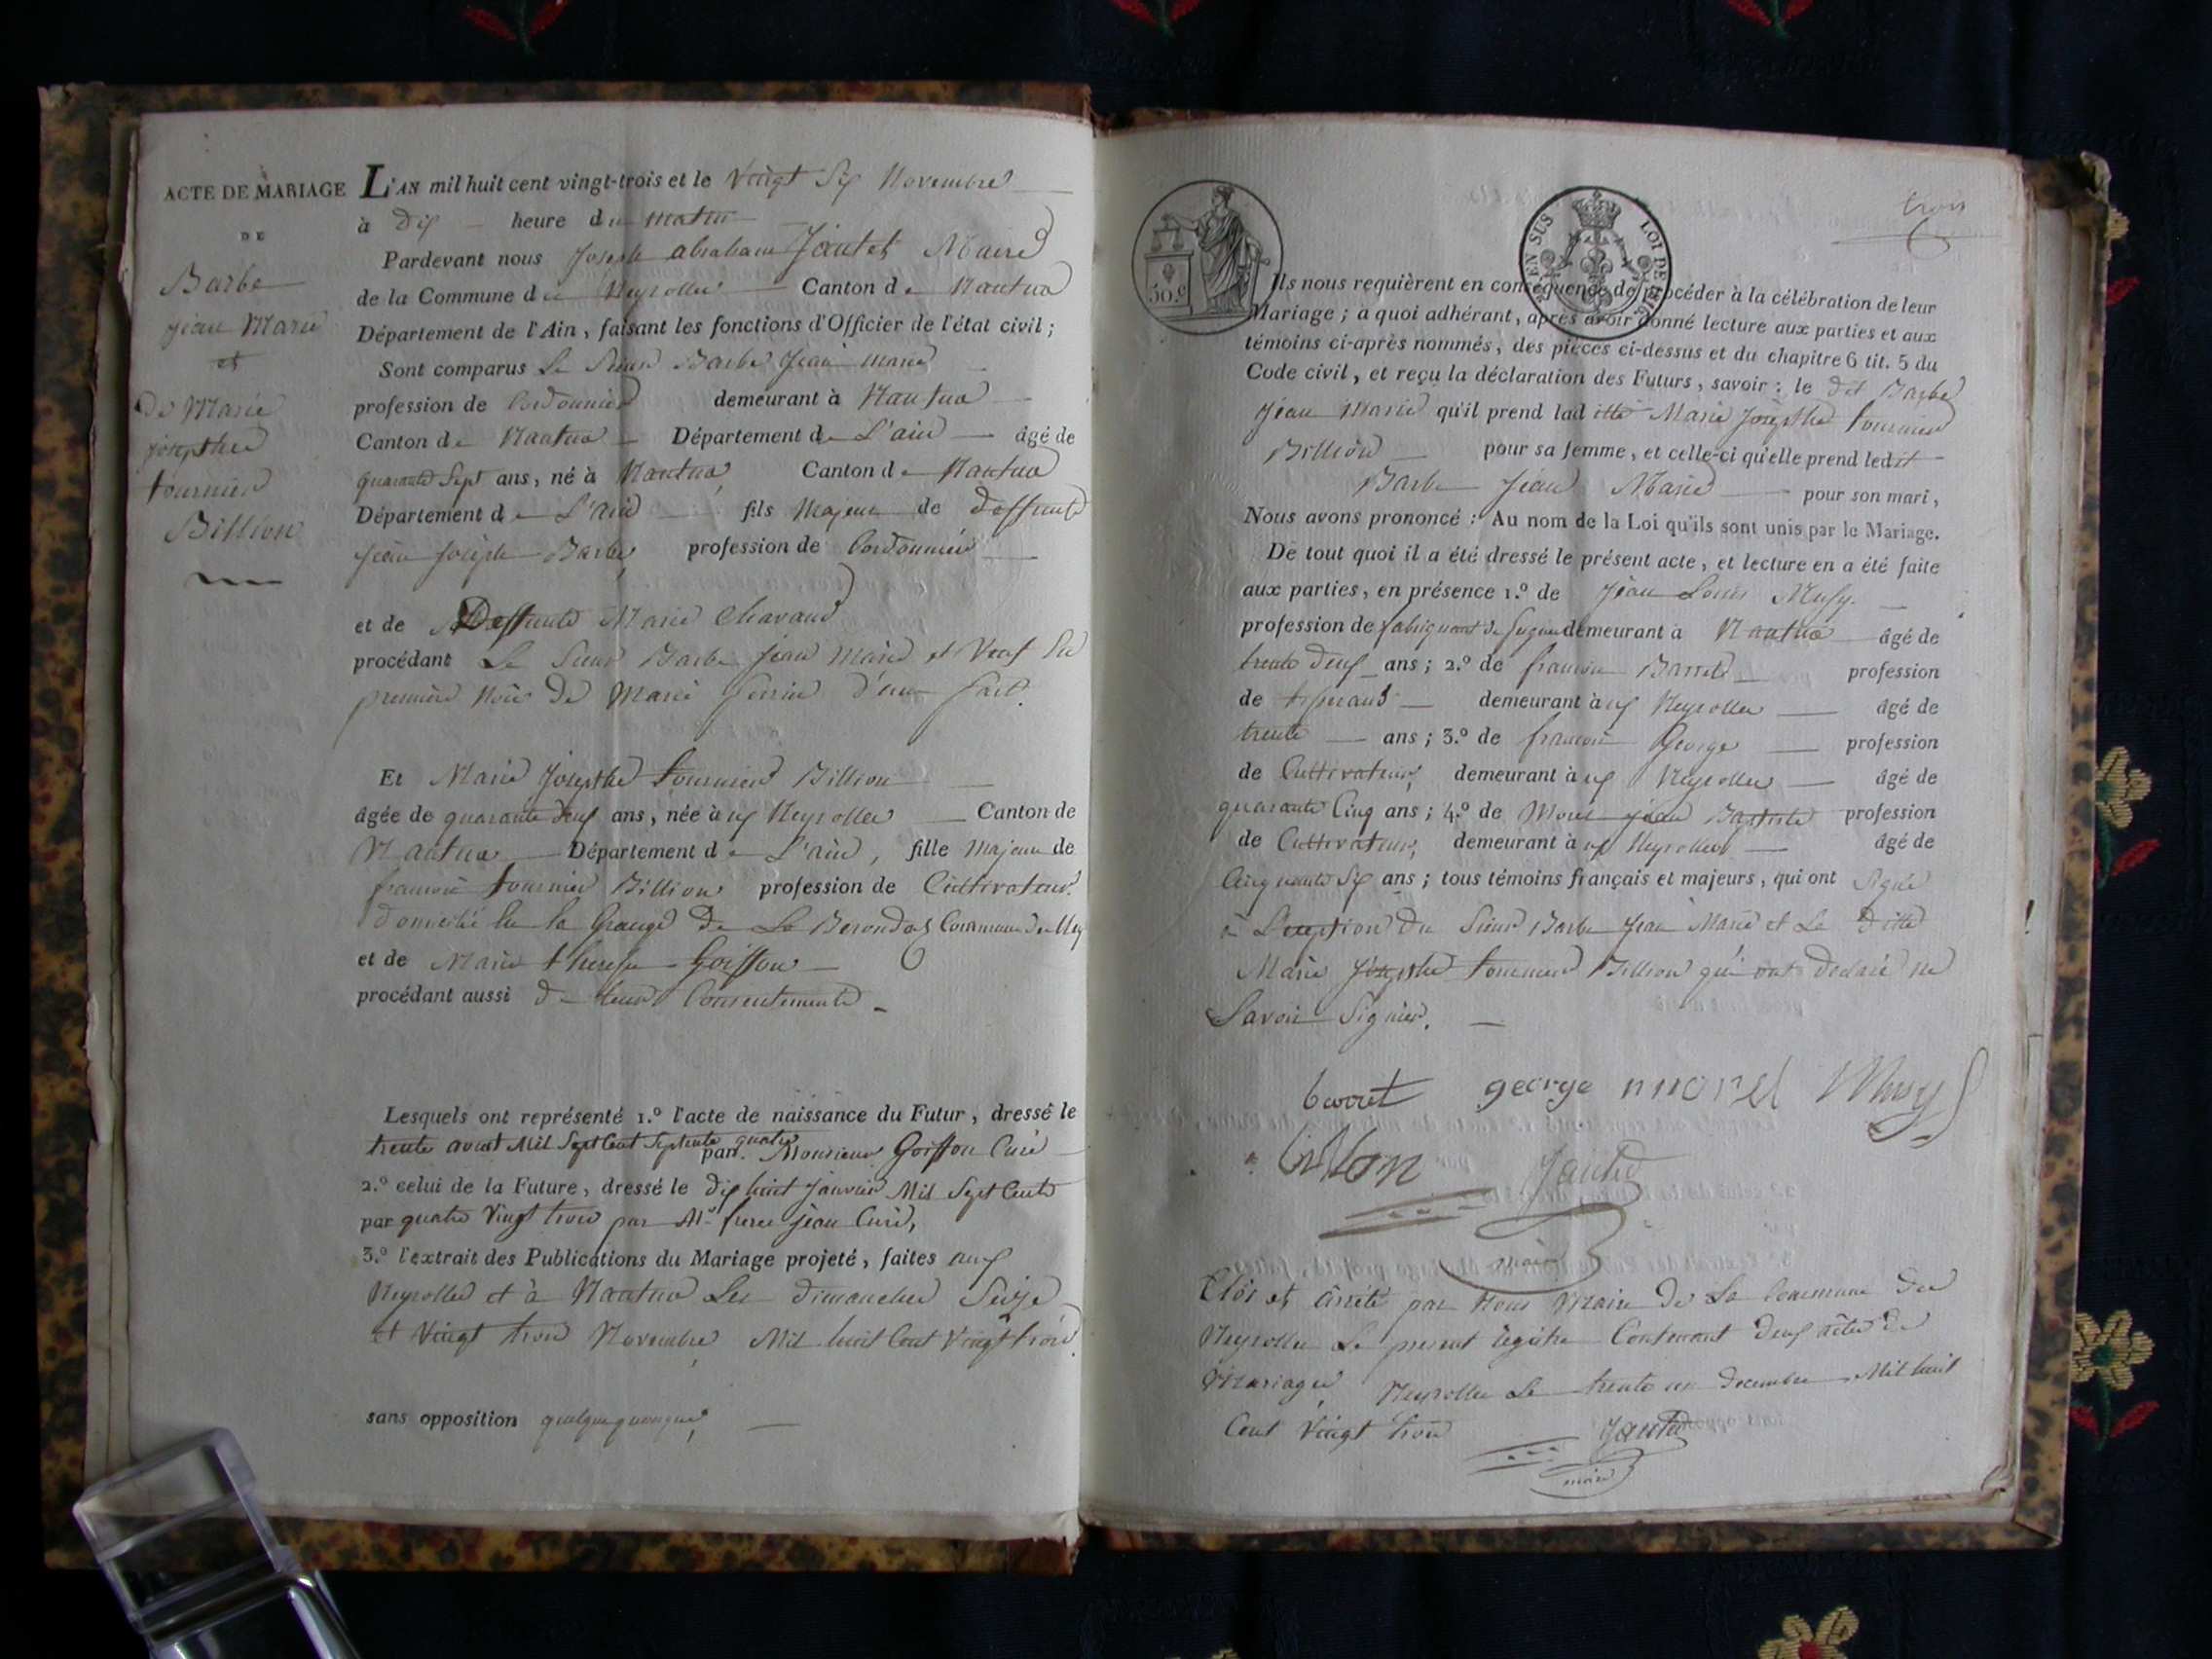 ACTE DE MARIAGE
DE
Barbe
jean Marie
et
De Marie
josepthe
tournier
Billion
L'AN mil huit cent vingt-trois et le Vingt Six Novembre
à Dix heure du matin
Pardevant nous Joseph abraham Jantet Maire
de la Commune des Neyrolles Canton de Nantua
Département de l'Ain, faisant les fonctions d'Officier de l'état civil;
Sont comparus Le Sieur Barbe Jean marie
profession de Cordonnier demeurant à Nantua
Canton de Nantua Département de L'ain âgé de
quarante Sept ans, né à Nantua Canton de Nantua
Département de L'ain fils Majeur de deffunt
Jean Joseph Barbe profession de Cordonnier
et de Deffunte Marie Chavand
procédant Le Sieur Barbe Jean Marie et Veuf En
première Noce de Marie d'une part.
Et Marie Josepthe tournier Billion
âgée de quarante deux ans, née aux Neyrolles Canton de
Nantua Département de L'ain, fille Majeure de
francois tournier Billion profession de Cultivateur
domicilié la Grange De La Commune des Ney
et de Marie therese Goiffon
procédant aussi de leurs Consentements
Lesquels ont représenté 1.º l'acte de naissance du Futur, dressé le
trente aoust Mil Sept Cent Septente quatre
par. Monsieur Goiffon Curé
2.º celui de la Future, dressé le dix huit Janvier Mil Sept Cents
par quatre Vingt trois par Mr. jean Curé,
3.º l'extrait des Publications du Mariage projeté, faites aux
Neyrolles et à Nantua Les dimanches Seize
et Vingt trois Novembre Mil huit Cent Vingt trois
sans opposition quelquonque,
50.c
EN SUS LOI DE 1816
trois
Ils nous requièrent en conséquence de procéder à la célébration de leur
Mariage; a quoi adhérant, après avoir donné lecture aux parties et aux
témoins ci-après nommés, des pièces ci-dessus et du chapitre 6 tit. 5 du
Code civil, et reçu la déclaration des Futurs, savoir: le dit Barbe
Jean Marie qu'il prend laditte Marie Josepthe tournier
Billion pour sa femme, et celle-ci qu'elle prend ledit
Barbe Jean Marie pour son mari,
Nous avons prononcé: Au nom de la Loi qu'ils sont unis par le Mariage.
De tout quoi il a été dressé le présent acte, et lecture en a été faite
aux parties, en présence 1.º de Jean Louis Musy
profession de fabriquant de demeurant à Nantua âgé de
trente deux ans; 2.º de francois Barret profession
de tisserand demeurant aux Neyrolles âgé de
trente ans; 3.º de francois George profession
de Cultivateur, demeurant aux Neyrolles âgé de
quarante Cinq ans; 4.º de Morel jean Baptiste profession
de Cultivateur, demeurant aux Neyrolles âgé de
Cinquante Six ans; tous témoins français et majeurs, qui ont Signé
à L'exeption du Sieur Barbe Jean Marie et La ditte
Marie Josepthe tournier Billion qui ont declaré ne
Savoir Signier.
barret george morel Musy
billion Jantet
maire
Clôs et arrété par Nous Maire de La Commune des
Neyrolles Le present registre Contenant deux actes de
Mariages Neyrolles Le trente un decembre Mil huit
Cent Vingt trois Jantet
maire